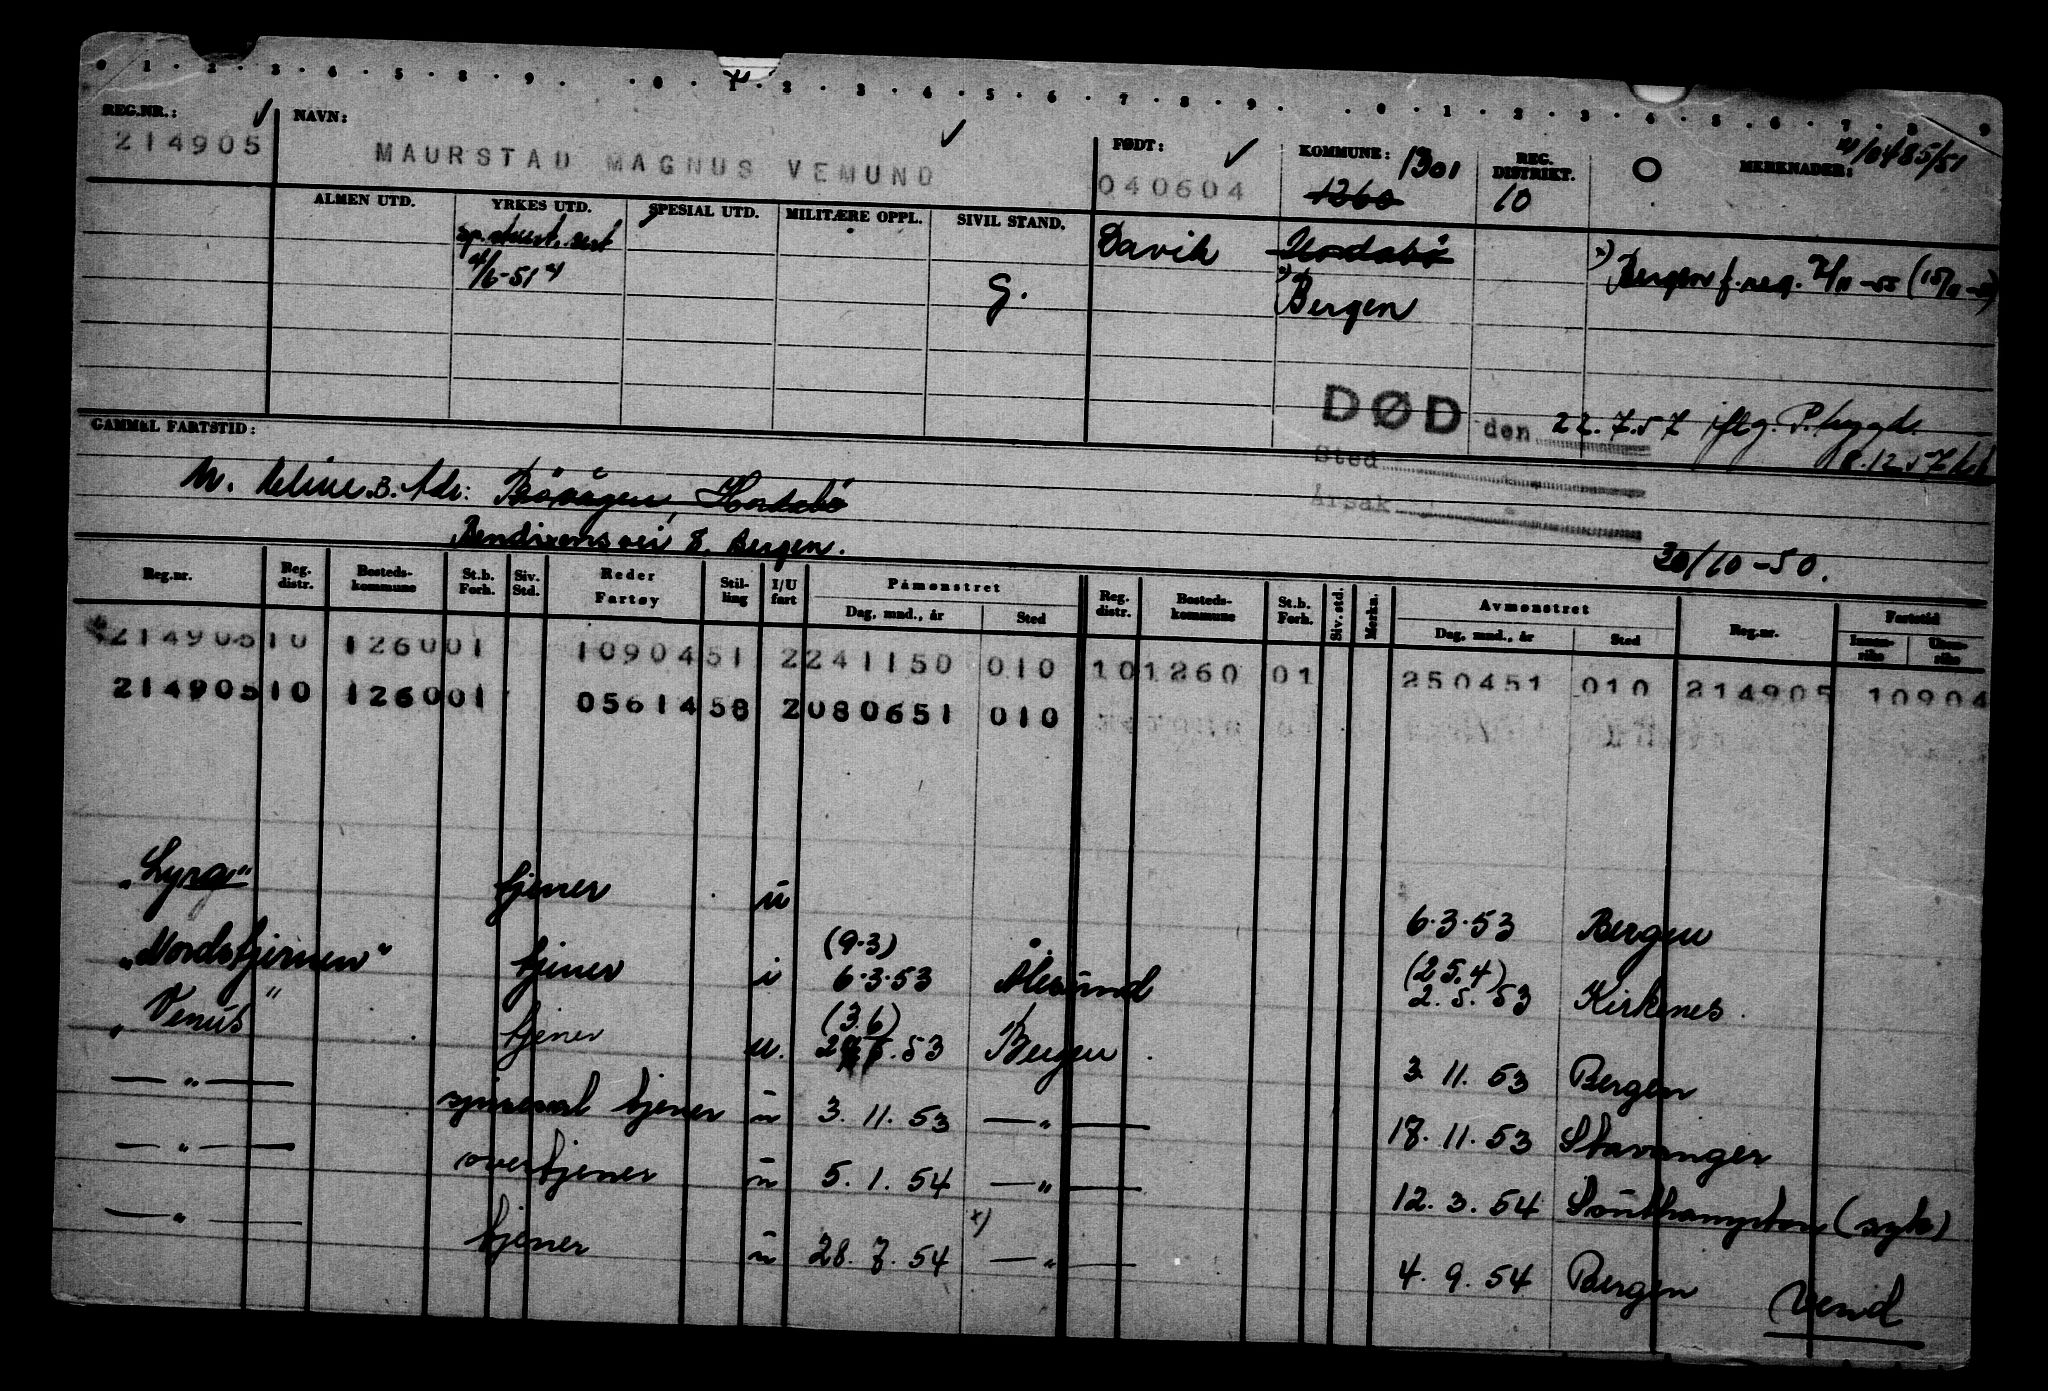 0 . 1 . 2 . 3 . 4 . 5 . 8 . 9 . . 0 . 1 . 2 . 3 . 4 . 5 . 6 . 7 . 8 . 9 . . 0 . 1 . 2 . 3 . 4 . 5 . 6 . 7 . 8 . 9
REG.NR.: ✓ NAVN: ✓ FØDT: ✓ KOMMUNE: 1301 REG. DISTRIKT. O MERKNADER: 10485/51
214905 MAURSTAD MAGNUS VEMUND 040604 1260 10
ALMEN UTD. YRKES UTD. SPESIAL UTD. MILITÆRE OPPL. SIVIL STAND.
Davik Hordabø
4/6-51 G. x) Bergen x) Bergen f.reg.
DØD den 22.7.57 iflg. P.trygd.
8.12.57
Sted
Årsak
GAMMEL FARTSTID:
M. Adr: Hordabø
Bendixensvei 8. Bergen.
30/10-50.
Reg.nr. Reg. distr. Bosteds-kommune St.b. Forh. Siv. Std. Reder Fartøy Stil-ling I/U fart Påmønstret Dag, mnd., år Sted Reg. distr. Bosteds-kommune St.b. Forh. Siv. std. Merkn. Avmønstret Dag, mnd., år Sted Reg.nr. Fartstid Innen-riks Uten-riks
214905 10 1260 01 10904 51 2 241150 010 10 1260 01 250451 010 214905 10904
214905 10 1260 01 05614 58 2 080651 010
"Lyra" tjener u 6.3.53 Bergen
(9.3) (25.4)
"Nordstjernen" tjener i 6.3.53 Ålesund 2.5.53 Kirkenes
(3.6)
"Venus" tjener u. .53 Bergen 3.11.53 Bergen
— " — tjener u 3.11.53 — " — 18.11.53 Stavanger
— " — overtjener u 5.1.54 — " — 12.3.54 Southampton (syk)
— " — tjener u 28.7.54 x) — " — 4.9.54 Bergen
Vend